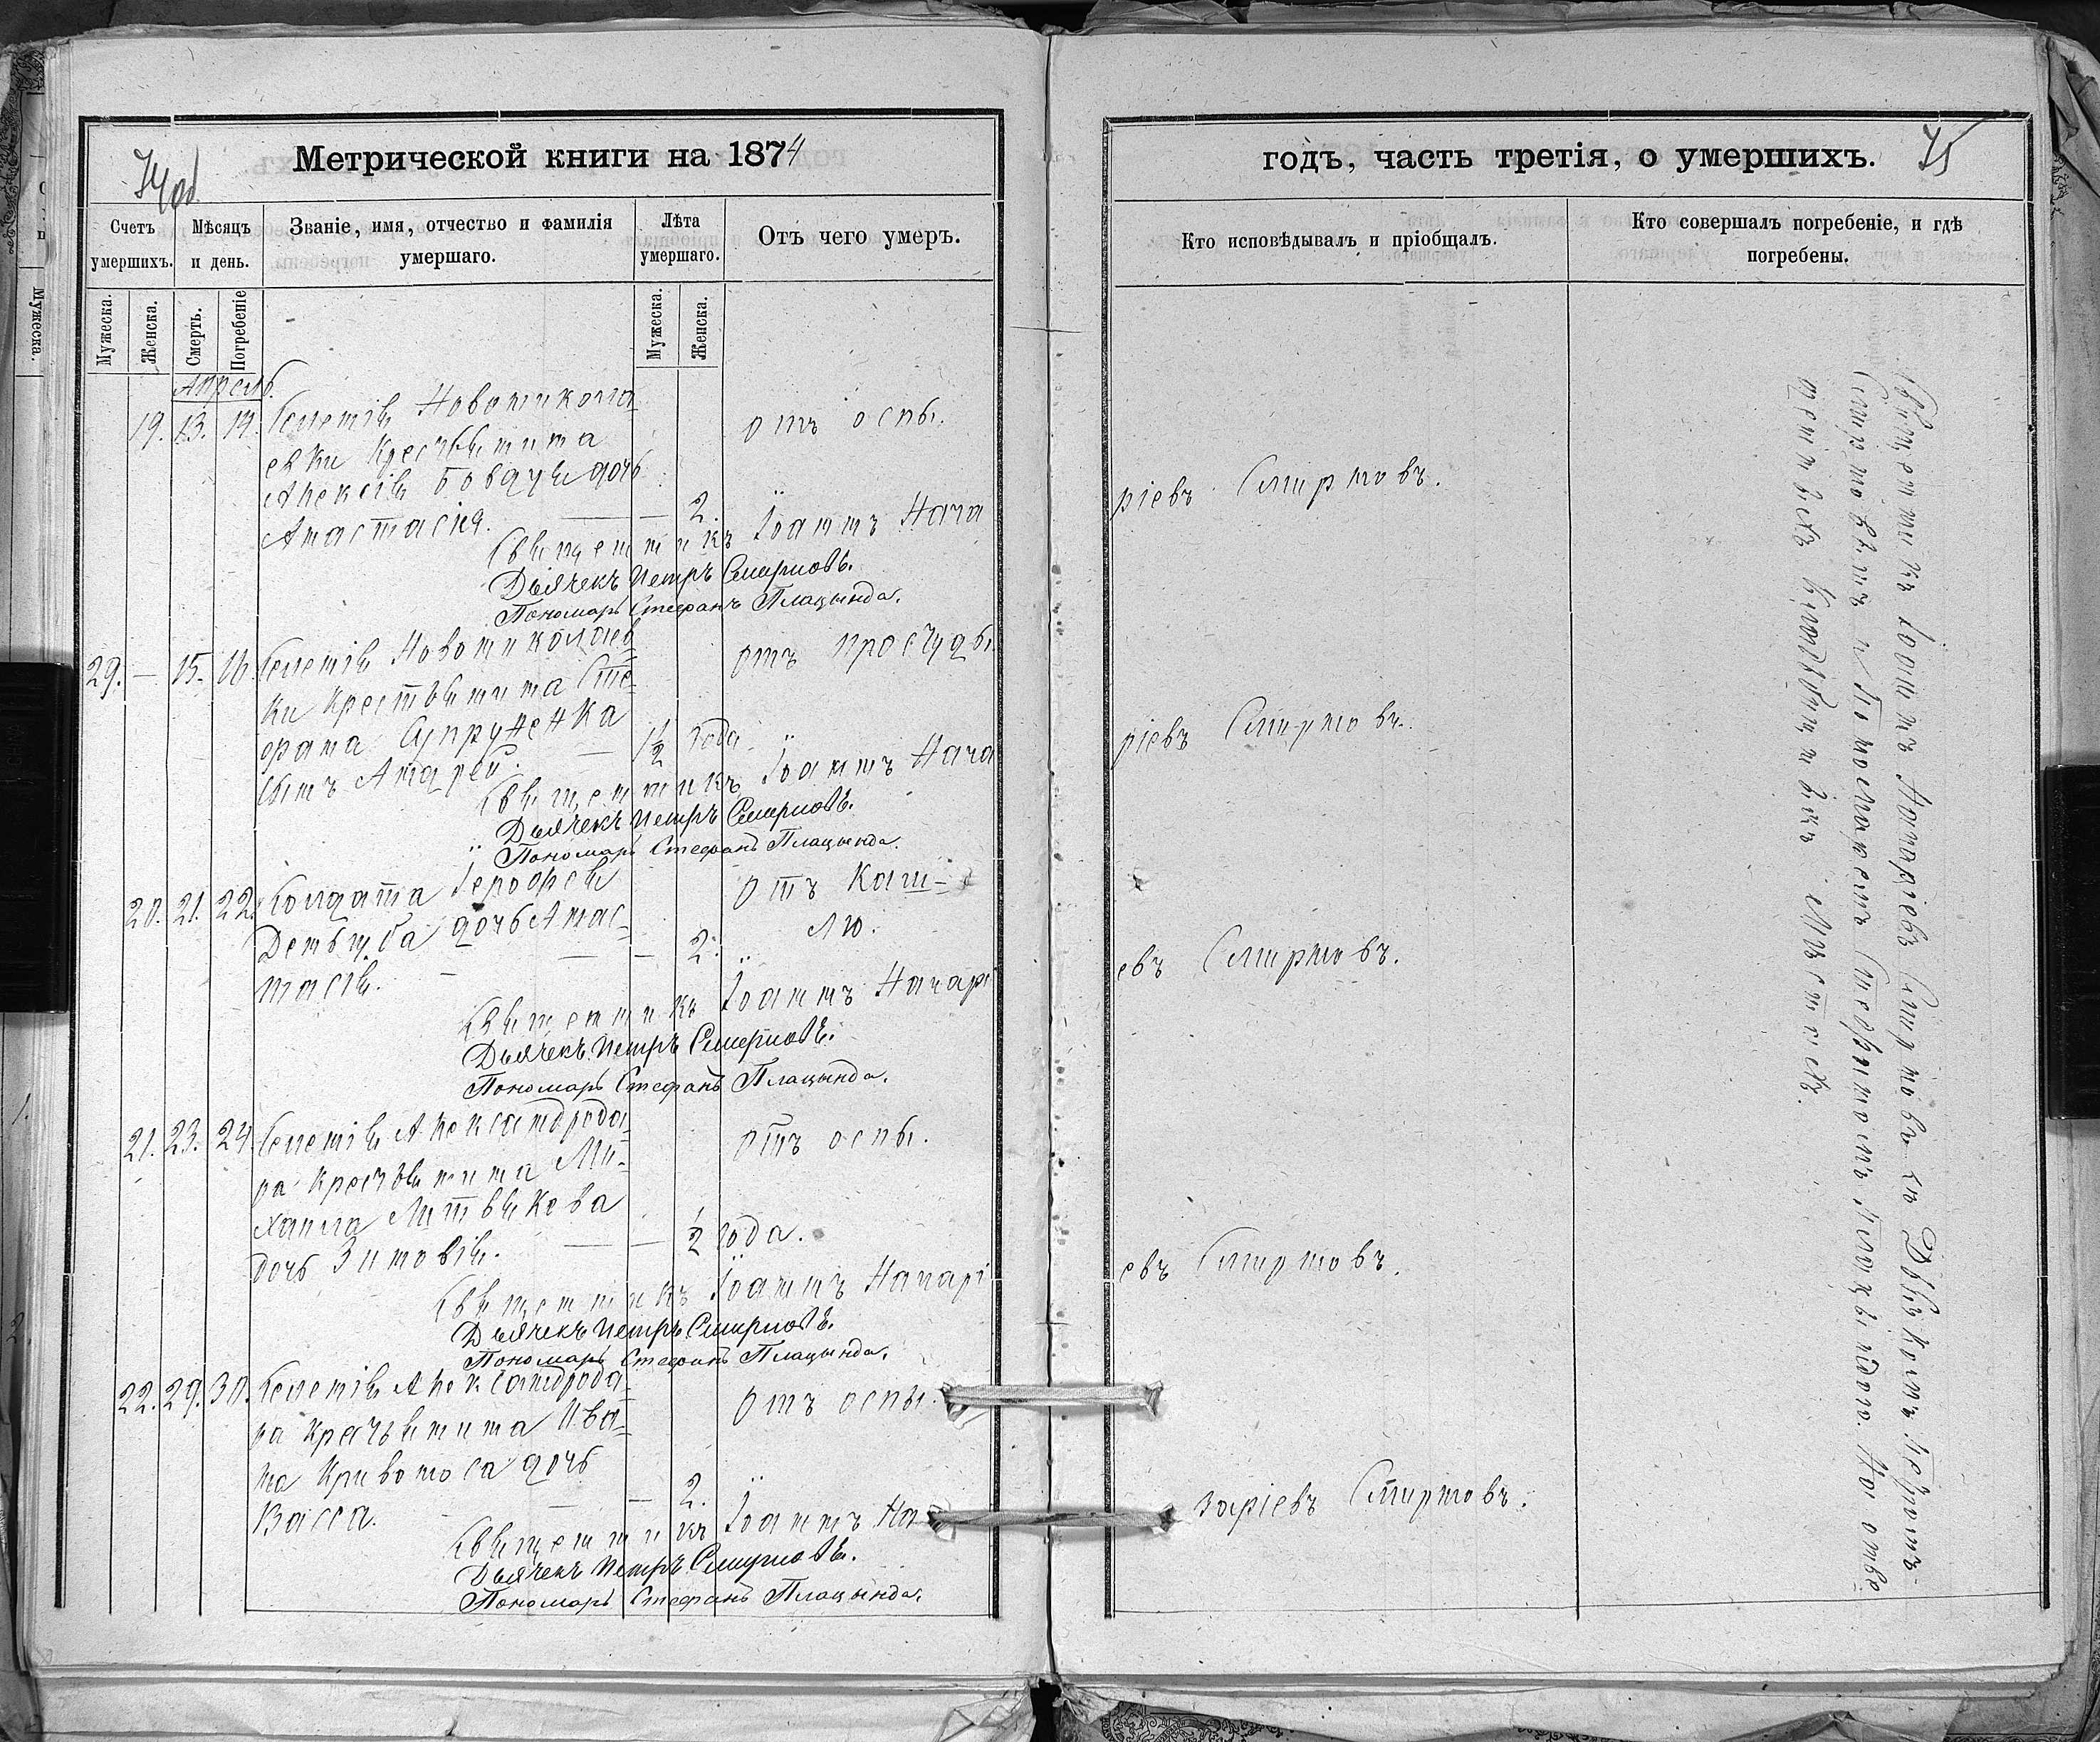 74 об.
Метрической книги на 1874
Счетъ умершихъ.
Мѣсяцъ и день.
Званіе, имя, отчество и фамилія умершаго.
Лѣта умершаго.
Отъ чего умеръ.
Мужеска.
Женска.
Смерть.
Погребеніе
Мужеска.
Женска.
Апрель.
19. 13. 14. Селенія Новоникола- отъ оспы.
евки Крестьянина
Алексія дочь
Анастасія. — — 2.
Священникъ Іоаннъ Наза
Дьячекъ Петръ Смирновъ.
Пономарь Стефанъ Плацында.
29. — 15. 16. Селенія Новониколаев- отъ простуды.
ки Крестьянина Сте-
фана Супруненка
сынъ Андрей. — 1 1/2 года
Священникъ Іоаннъ Наза
Дьячекъ Петръ Смирновъ.
Пономарь Стефанъ Плацында.
20. 21. 22. Солдата Іерофея отъ каш-
дочь Анас- лю.
тасія. — — 2.
Священникъ Іоаннъ Назарі
Дьячекъ Петръ Смирновъ.
Пономарь Стефанъ Плацында.
21. 23. 24. Селенія Александрода- отъ оспы.
ра крестьянина Ми-
хаила Литвякова
дочь Зиновія. — — 1/2 года.
Священникъ Іоаннъ Назарі
Дьячекъ Петръ Смирновъ.
Пономарь Стефанъ Плацында.
22. 29. 30. Селенія Александрода- отъ оспы.
ра крестьянина Ива-
на Кривоноса дочь
Васса. — — 2.
Священникъ Іоаннъ На
Дьячекъ Петръ Смирновъ.
Пономарь Стефанъ Плацында.
годъ, часть третія, о умершихъ. 75
Кто исповѣдывалъ и пріобщалъ.
Кто совершалъ погребеніе, и гдѣ погребены.
ріевъ Смирновъ.
ріевъ Смирновъ.
евъ Смирновъ.
евъ Смирновъ.
заріевъ Смирновъ.
Священникъ Іоаннъ Назаріевъ Смирновъ съ Дьячкомъ Петромъ
Смирновымъ и Пономаремъ Стефаномъ Плацындою. На отве
денныхъ кладбищныхъ мѣстахъ.